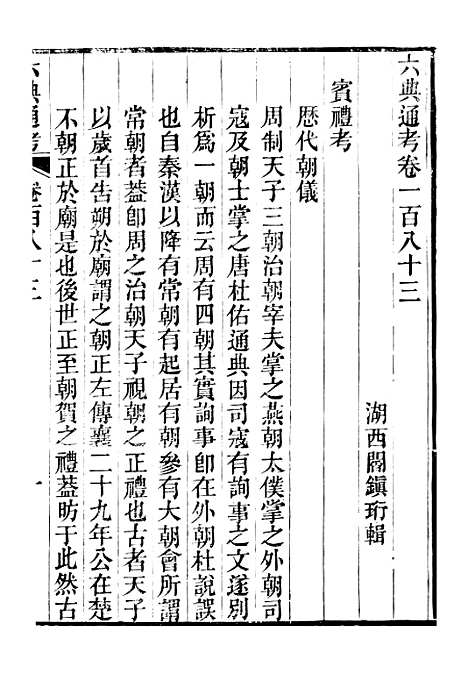 六典通考卷一百八十三
湖西閻鎮珩輯
賓禮考
歷代朝儀
周制天子三朝治朝宰夫掌之燕朝太僕掌之外朝司
寇及朝士掌之唐杜佑通典因司寇有詢事之文遂別
析爲一朝而云周有四朝其實詢事卽在外朝杜說誤
也自秦漢以降有常朝有起居有朝參有大朝會所謂
常朝者蓋卽周之治朝天子視朝之正禮也古者天子
以歲首告朔於廟謂之朝正左傳襄二十九年公在楚
不朝正於廟是也後世正至朝賀之禮蓋昉于此然古
六典通考
卷百八十三
一